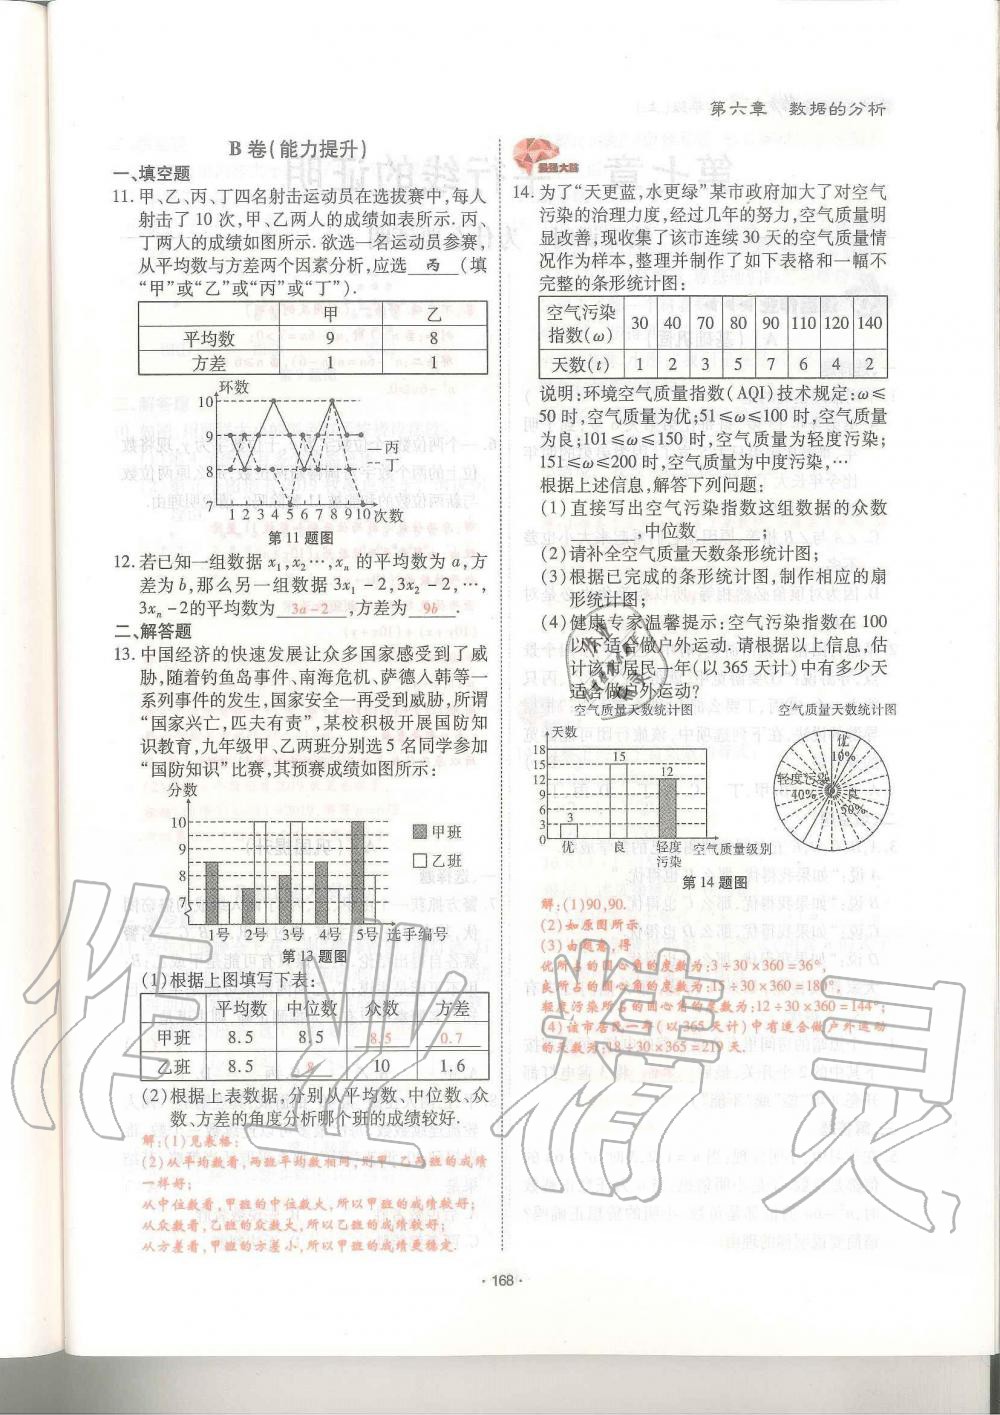 第六章 数据的分析
B卷(能力提升)
一、填空题
11.甲、乙、丙、丁四名射击运动员在选拔赛中,每人
射击了10次,甲、乙两人的成绩如表所示.丙、
丁两人的成绩如图所示.欲选一名运动员参赛,
从平均数与方差两个因素分析,应选 丙 (填
“甲”或“乙”或“丙”或“丁”).
甲 乙
平均数 9 8
方差 1 1
环数
10
9
8
7
丙
丁
1 2 3 4 5 6 7 8 9 10 次数
第11题图
12.若已知一组数据x₁,x₂…,xₙ的平均数为a,方
差为b,那么另一组数据3x₁-2,3x₂-2,…,
3xₙ-2的平均数为 3a-2 ,方差为 9b .
二、解答题
13.中国经济的快速发展让众多国家感受到了威
胁,随着钓鱼岛事件、南海危机、萨德入韩等一
系列事件的发生,国家安全一再受到威胁,所谓
“国家兴亡,匹夫有责”,某校积极开展国防知
识教育,九年级甲、乙两班分别选5名同学参加
“国防知识”比赛,其预赛成绩如图所示:
分数
10
9
8
7
甲班
乙班
1号 2号 3号 4号 5号 选手编号
第13题图
(1)根据上图填写下表:
平均数 中位数 众数 方差
甲班 8.5 8.5 8.5 0.7
乙班 8.5 8 10 1.6
(2)根据上表数据,分别从平均数、中位数、众
数、方差的角度分析哪个班的成绩较好.
解:(1)见表格:
(2)从平均数看,两班平均数相同,则甲、乙两班的成绩
一样好;
从中位数看,甲班的中位数大,所以甲班的成绩较好;
从众数看,乙班的众数大,所以乙班的成绩较好;
从方差看,甲班的方差小,所以甲班的成绩更稳定.
最强大脑
14.为了“天更蓝,水更绿”某市政府加大了对空气
污染的治理力度,经过几年的努力,空气质量明
显改善,现收集了该市连续30天的空气质量情
况作为样本,整理并制作了如下表格和一幅不
完整的条形统计图:
空气污染
指数(ω) 30 40 70 80 90 110 120 140
天数(t) 1 2 3 5 7 6 4 2
说明:环境空气质量指数(AQI)技术规定:ω≤
50时,空气质量为优;51≤ω≤100时,空气质量
为良;101≤ω≤150时,空气质量为轻度污染;
151≤ω≤200时,空气质量为中度污染,…
根据上述信息,解答下列问题:
(1)直接写出空气污染指数这组数据的众数
,中位数 ;
(2)请补全空气质量天数条形统计图;
(3)根据已完成的条形统计图,制作相应的扇
形统计图;
(4)健康专家温馨提示:空气污染指数在100
以下适合做户外运动.请根据以上信息,估
计该市居民一年(以365天计)中有多少天
适合做户外运动?
空气质量天数统计图 空气质量天数统计图
天数
18
15
12
9
6
3
0
3
15
12
优 良 轻度
污染
空气质量级别
优
10%
轻度污染
40%
良
50%
第14题图
解:(1)90,90.
(2)如原图所示.
(3)由题意,得
优所占的圆心角的度数为:3÷30×360=36°,
良所占的圆心角的度数为:15÷30×360=180°,
轻度污染所占的圆心角的度数为:12÷30×360=144°;
(4)该市居民一年(以365天计)中有适合做户外运动
的天数为:18÷30×365=219天.
作业精灵
·168·